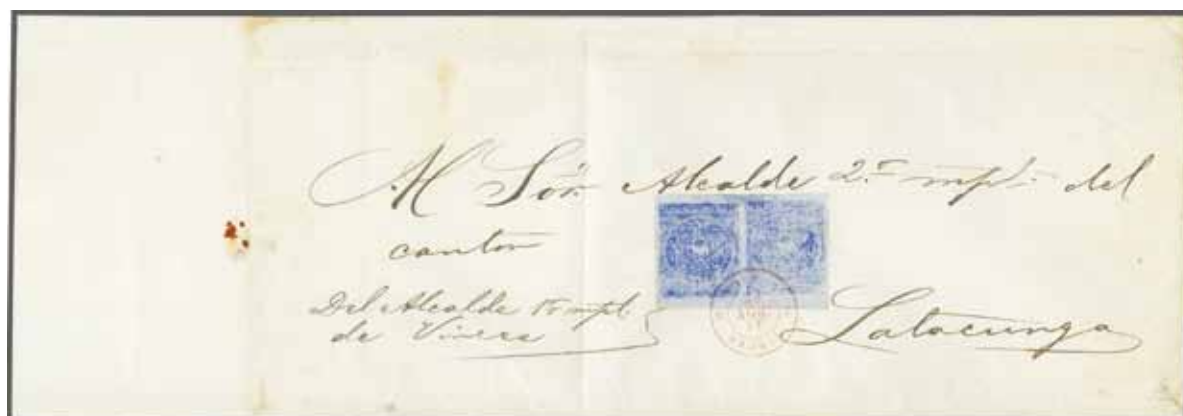 Al Sór. Alcalde 2.º mpl. del
cantón
Del Alcalde 1º mpl.
de Vinces
Latacunga